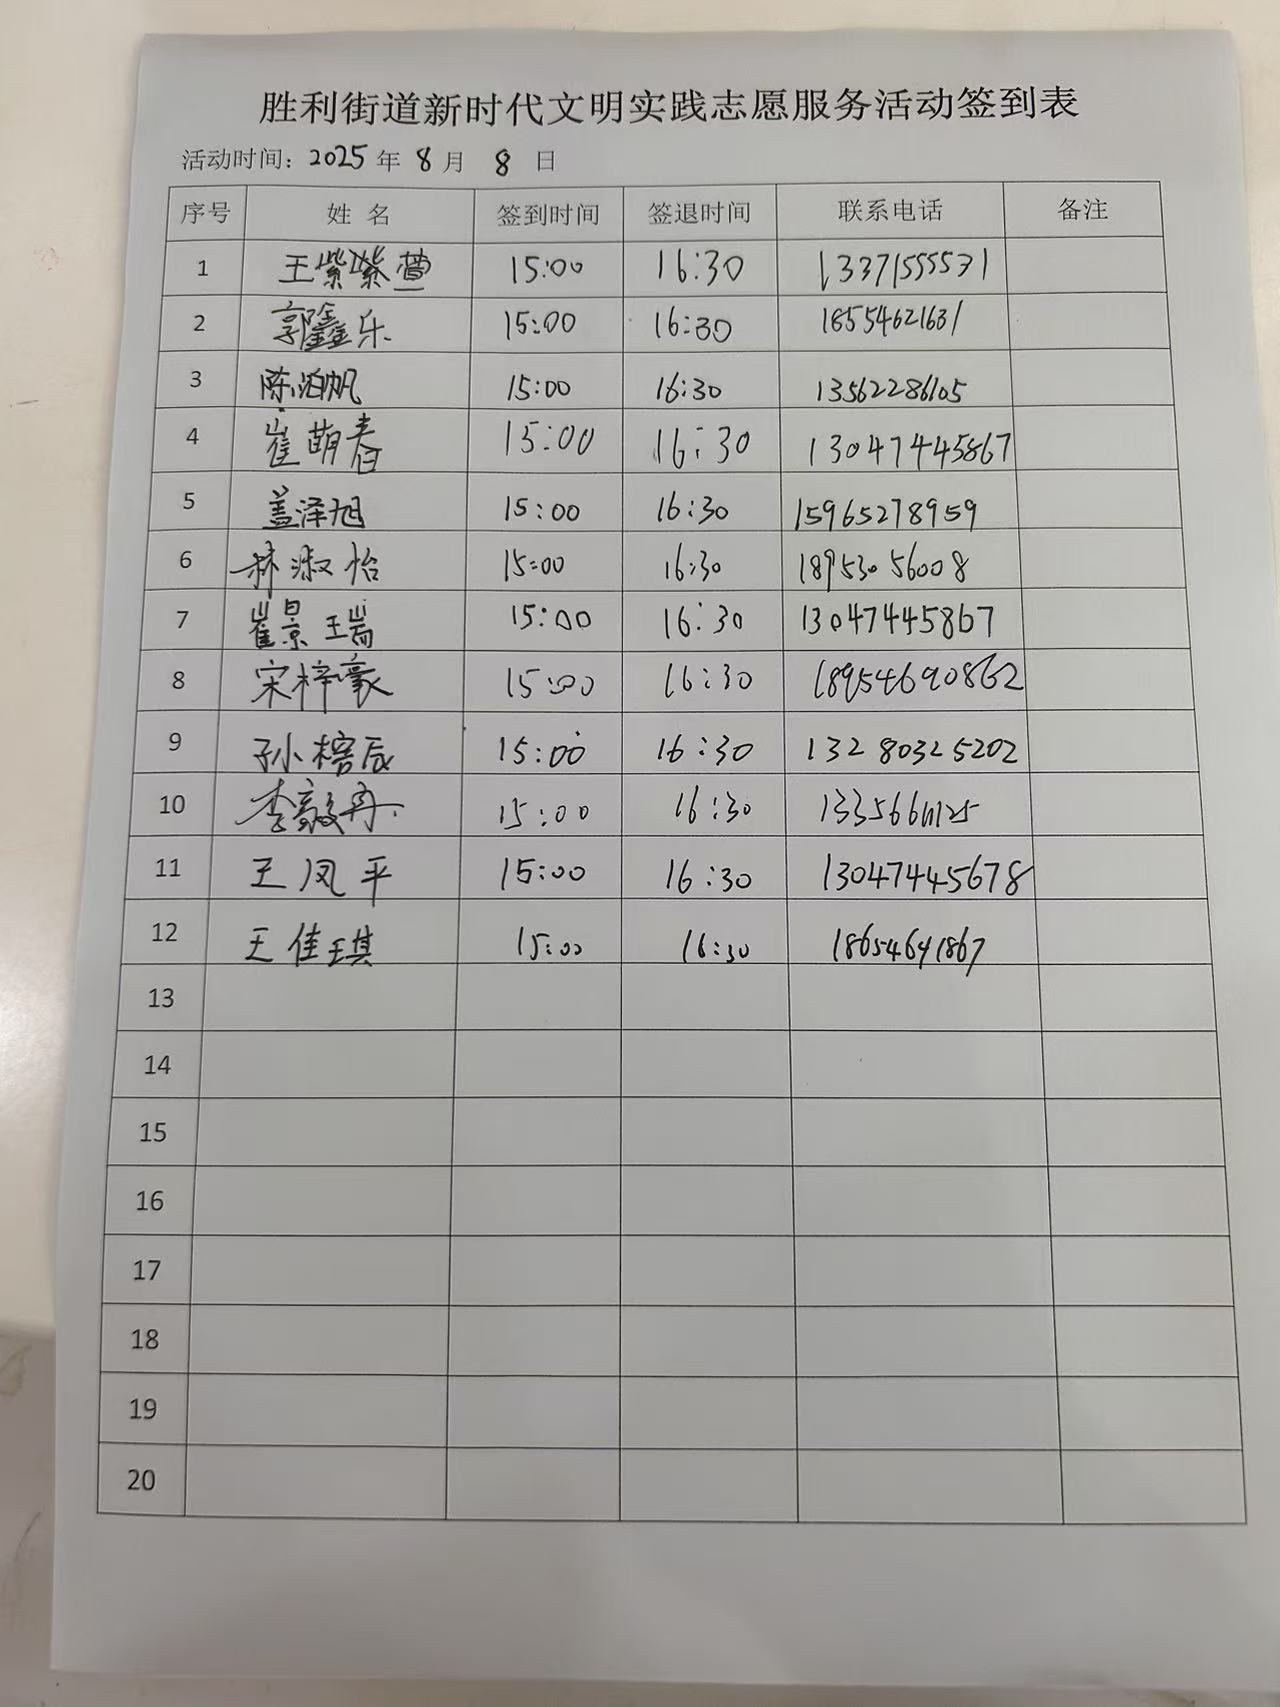 胜利街道新时代文明实践志愿服务活动签到表
活动时间：2025 年 8 月 8 日
序号 姓 名 签到时间 签退时间 联系电话 备注
1 王紫紫萱 15:00 16:30 13371555531
2 郭鑫乐 15:00 16:30 18554621631
3 陈泊帆 15:00 16:30 13562286105
4 崔萌春 15:00 16:30 13047445867
5 盖泽旭 15:00 16:30 15965278959
6 林淑怡 15:00 16:30 18953056008
7 崔景瑞 15:00 16:30 13047445867
8 宋梓豪 15:00 16:30 18954690862
9 孙榕辰 15:00 16:30 13280325202
10 李毅冉 15:00 16:30
11 王凤平 15:00 16:30 13047445678
12 王佳琪 15:00 16:30 18654641867
13
14
15
16
17
18
19
20